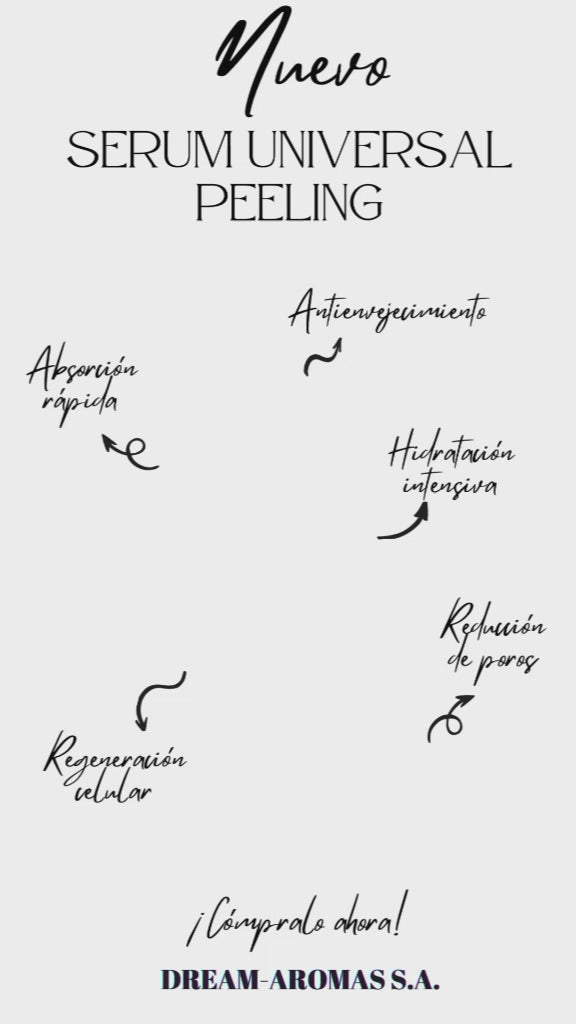 Nuevo
SERUM UNIVERSAL
PEELING
Antienvejecimiento
Absorción
rápida
Hidratación
intensiva
Reducción
de poros
Regeneración
celular
¡Cómpralo ahora!
DREAM-AROMAS S.A.